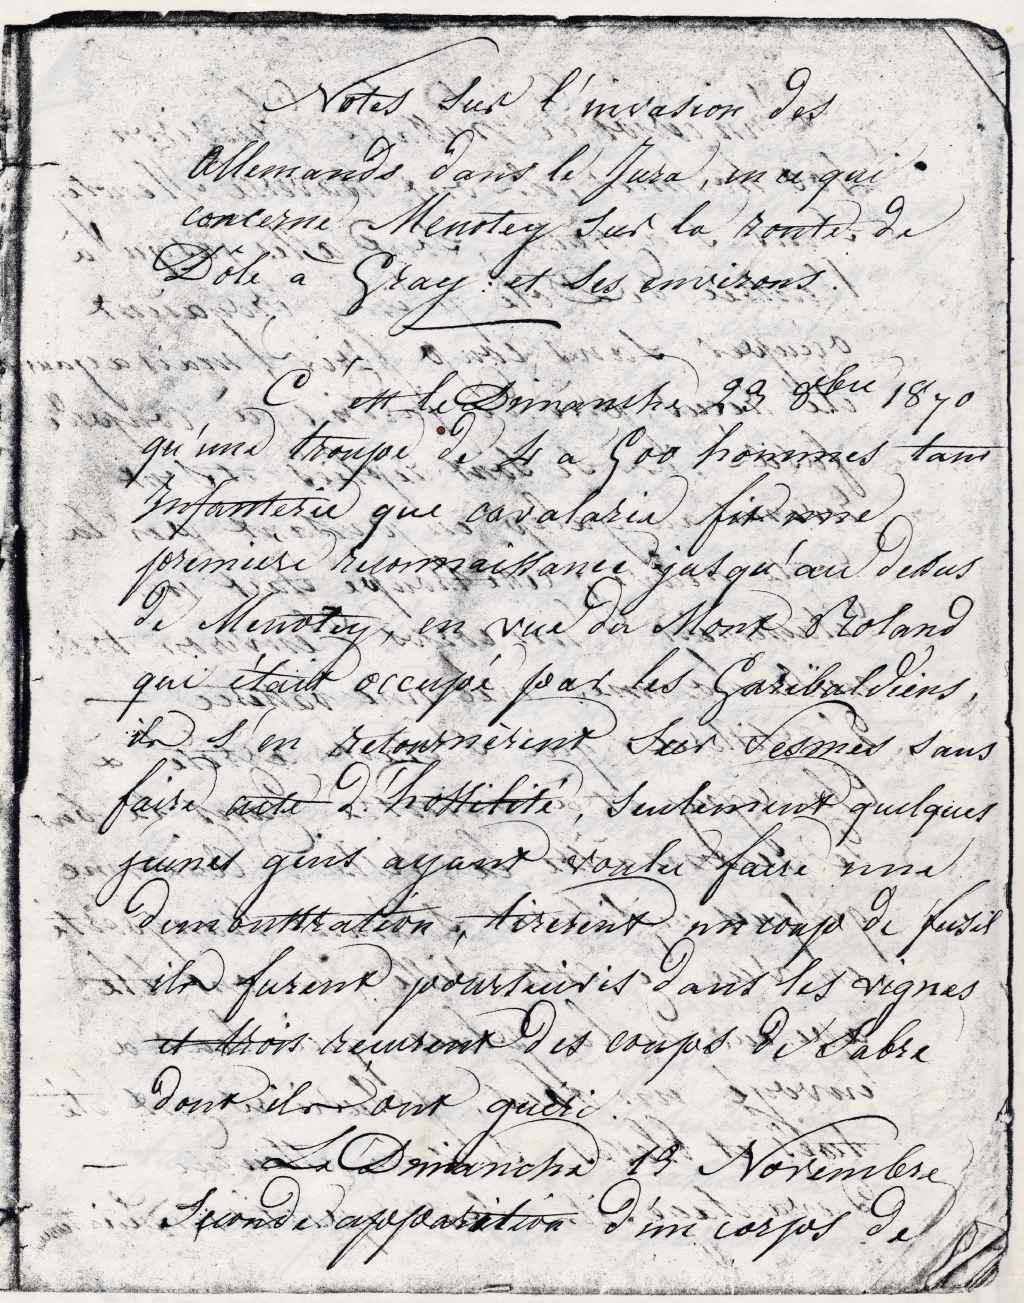 Notes sur l'invasion des
Allemands dans le Jura, en ce qui
concerne Menotey sur la route de
Dôle à Gray et ses environs.
C'est le Dimanche 23 8bre 1870
qu'une troupe de 4 a 500 hommes tant
Infanterie que cavalarie fit une
premiere reconnaissance jusqu'au dessus
de Menotey, en vue du Mont Roland
qui était occupé par les Garibaldiens,
ils s'en retournèrent sur Pesmes sans
faire acte d'hostilité, seulement quelques
jeunes gens ayant voulu faire une
demonstration, tirerent un coup de fusil
ils furent poursuivis dans les vignes
et trois reçurent des coups de Sabre
dont ils ont guéri.
Le Dimanche 13 Novembre
Seconde apparition d'un corps de